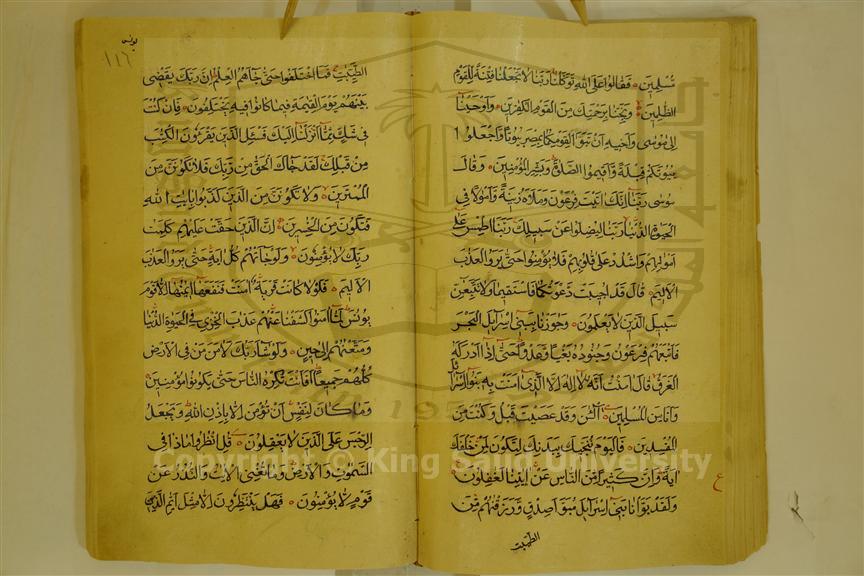 مسلمين فقالوا على الله توكلنا ربنا لا تجعلنا فتنة للقوم
الظلمين ونجنا برحمتك من القوم الكفرين واوحينا
الى موسى واخيه ان تبوا لقومكما بمصر بيوتا واجعلوا
بيوتكم قبلة واقيموا الصلوة وبشر المؤمنين وقال
موسى ربنا انك اتيت فرعون وملاه زينة واموالا في
الحيوة الدنيا ربنا ليضلوا عن سبيلك ربنا اطمس على
اموالهم واشدد على قلوبهم فلا يؤمنوا حتى يروا العذاب
الاليم قال قد اجيبت دعوتكما فاستقيما ولا تتبعن
سبيل الذين لا يعلمون وجوزنا ببني اسرايل البحر
فاتبعهم فرعون وجنوده بغيا وعدوا حتى اذا ادركه
الغرق قال امنت انه لا اله الا الذي امنت به بنوا اسرايل
وانا من المسلمين آلئن وقد عصيت قبل وكنت من
المفسدين فاليوم ننجيك ببدنك لتكون لمن خلفك
اية وان كثيرا من الناس عن ايتنا لغفلون
ع
ولقد بوانا بني اسرايل مبوا صدق ورزقنهم من
الطيبت
يونس
١١٦
الطيبت فما اختلفوا حتى جاهم العلم ان ربك يقضي
بينهم يوم القيمة فيما كانوا فيه يختلفون فان كنت
في شك مما انزلنا اليك فسئل الذين يقرؤن الكتب
من قبلك لقد جاك الحق من ربك فلا تكونن من
الممترين ولا تكونن من الذين كذبوا بايت الله
فتكون من الخسرين ان الذين حقت عليهم كلمت
ربك لا يؤمنون ولو جاتهم كل اية حتى يروا العذاب
الاليم فلولا كانت قرية امنت فنفعها ايمنها الا قوم
يونس لما امنوا كشفنا عنهم عذاب الخزي في الحيوة الدنيا
ومتعنهم الى حين ولو شا ربك لامن من في الارض
كلهم جميعا افانت تكره الناس حتى يكونوا مؤمنين
وما كان لنفس ان تؤمن الا باذن الله ويجعل
الرجس على الذين لا يعقلون قل انظروا ماذا في
السموت والارض وما تغني الايت والنذر عن
قوم لا يؤمنون فهل ينتظرون الا مثل ايام الذين
Copyright © King Saud University